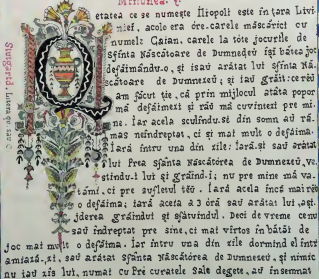 Minunea.
etatea ce se numește Iliopoli este în țara Livi
nief, acolo era óre-carele măscărici cu
numele Gaian. carele la tóte jocurile de
Sfinta Născătóre de Dumnedeŭ își bătea joc
defăimându-o, și i-saŭ arătat lui sfinta Nă-
scătoare de Dumnezeŭ; și iaŭ grăit: ce rĕŭ
am făcut ție, că prin mijlocul atâta popor
mă defaimezi și răŭ mă cuvintezi pre mi-
ne. Iar acela sculîndu-se din somn aŭ ră-
mas neîndreptat, ci și mai mult o defăima.
Iară întru una din zile: Iară-și saŭ arătat
lui Prea Sfanta Născĕtórea de Dumnezeŭ, ve-
stindu-i lui și grăind-i; nu pre mine mă va-
tămi, ci pre sufletul tĕŭ. Iară acela încă mai rĕŭ
o defăima; iară acela a 3 óră saŭ arătat lui, ași-
jderea grăindui și sfătuindul. Deci de vreme ce nu
saŭ îndreptat pre sine, ci mai virtos în bătăt de
joc mai mult o defăima. Iar întru una din zile dormind el întru
amiazá-zi, saŭ arătat Sfînta Născătórea de Dumnezeŭ, și nimic
nu iaŭ zis lui, numai cu Pre curatele Sale degete, aŭ însemnat
Slutgarid. Litera qu. sau C